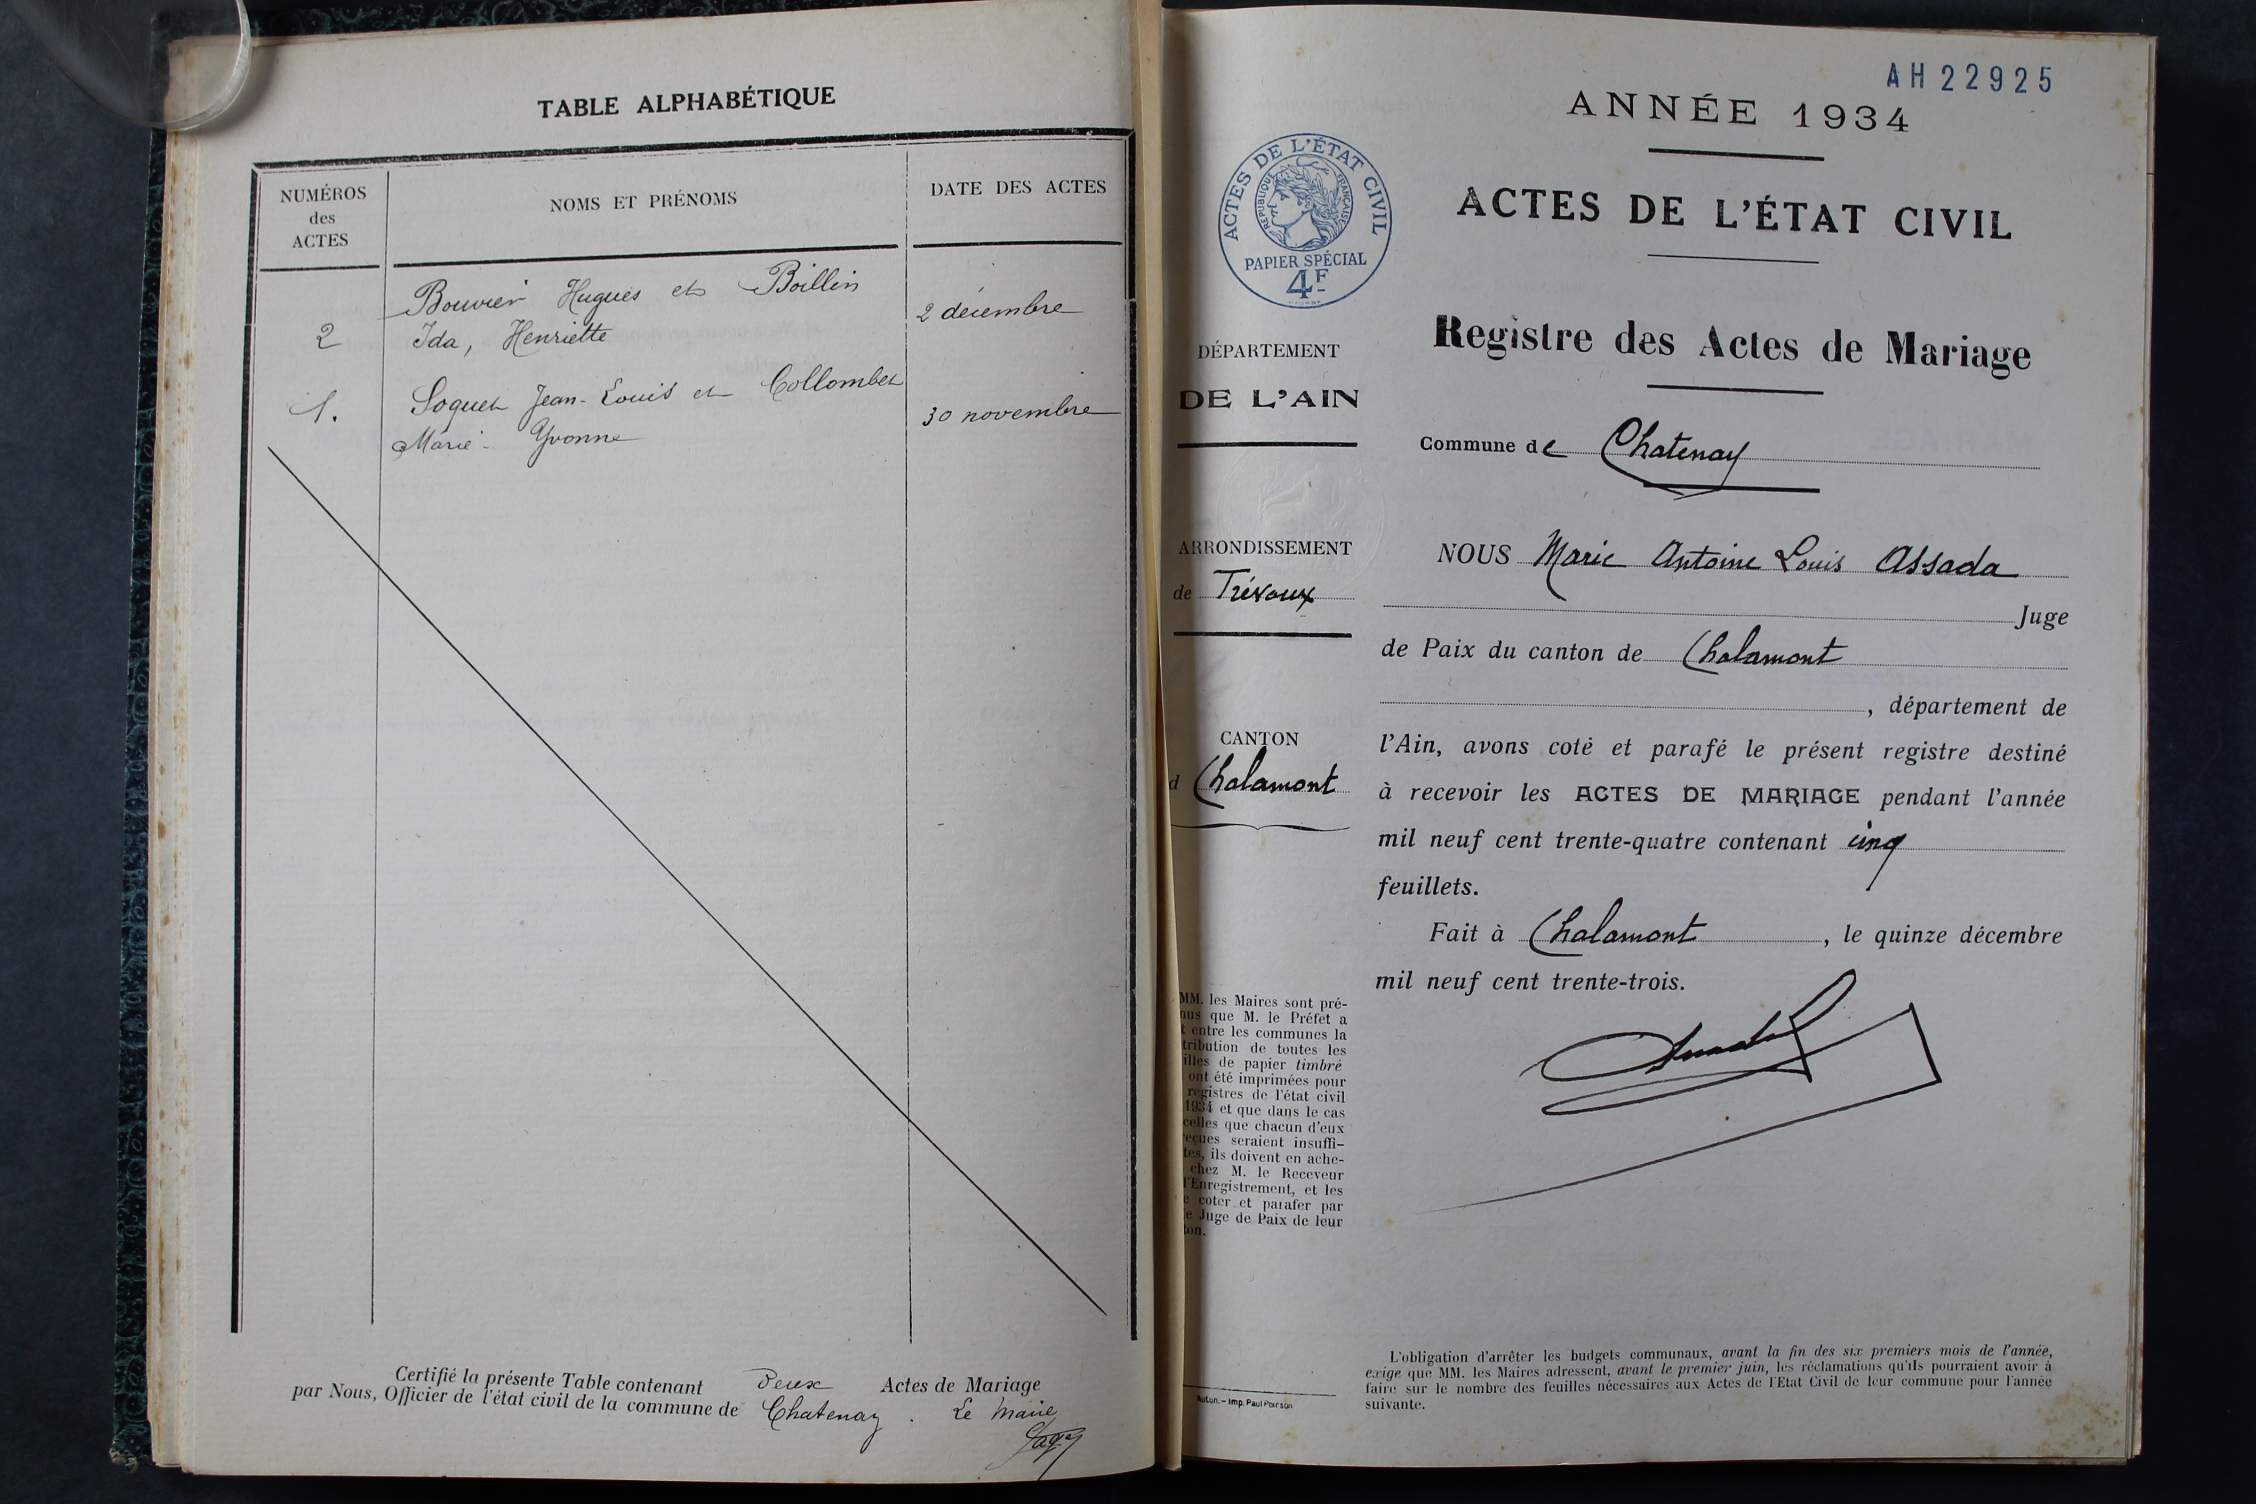 TABLE ALPHABÉTIQUE
NUMÉROS
des
ACTES
NOMS ET PRÉNOMS
DATE DES ACTES
Bouvier Hugues et Boillin
2
Ida, Henriette
2 décembre
1.
Soquet Jean-Louis et Collombet
Marie-Yvonne
30 novembre
Certifié la présente Table contenant Deux Actes de Mariage
par Nous, Officier de l'état civil de la commune de Chatenay. Le Maire
AH 22925
ANNÉE 1934
ACTES DE L'ÉTAT CIVIL
RÉPUBLIQUE FRANÇAISE
PAPIER SPÉCIAL
4F
ACTES DE L'ÉTAT CIVIL
DÉPARTEMENT
DE L'AIN
ARRONDISSEMENT
de Trévoux
CANTON
d Chalamont
MM. les Maires sont pré-
nus que M. le Préfet a
t entre les communes la
tribution de toutes les
illes de papier timbré
ont été imprimées pour
registres de l'état civil
1934 et que dans le cas
celles que chacun d'eux
reçues seraient insuffi-
tes, ils doivent en ache-
chez M. le Receveur
l'Enregistrement, et les
e coter et parafer par
e Juge de Paix de leur
ton.
Auton. – Imp. Paul Poirson
Registre des Actes de Mariage
Commune de Chatenay
NOUS Marie Antoine Louis Assada
Juge
de Paix du canton de Chalamont
, département de
l'Ain, avons coté et parafé le présent registre destiné
à recevoir les ACTES DE MARIAGE pendant l'année
mil neuf cent trente-quatre contenant cinq
feuillets.
Fait à Chalamont, le quinze décembre
mil neuf cent trente-trois.
L'obligation d'arrêter les budgets communaux, avant la fin des six premiers mois de l'année,
exige que MM. les Maires adressent, avant le premier juin, les réclamations qu'ils pourraient avoir à
faire sur le nombre des feuilles nécessaires aux Actes de l'Etat Civil de leur commune pour l'année
suivante.